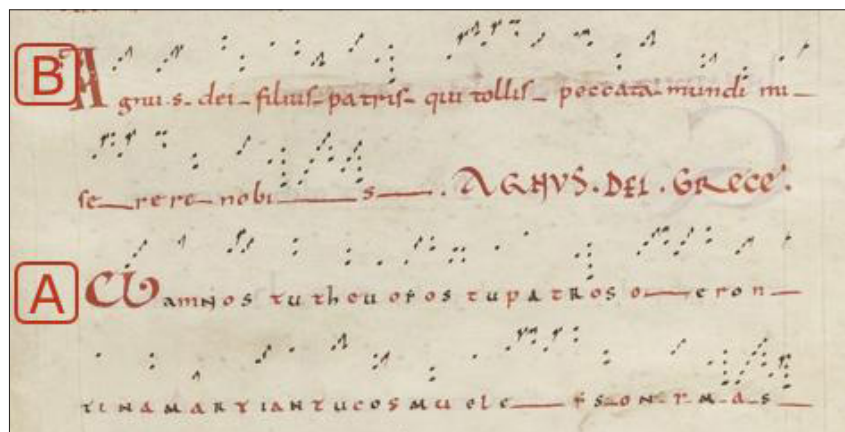 B
Agnus dei filius patris qui tollis peccata mundi mi
serere nobis. AGNUS. DEI. GRECE.
A
O amnos tu theu oios tu patros o eron
tin amartian tu cosmu ele ison imas